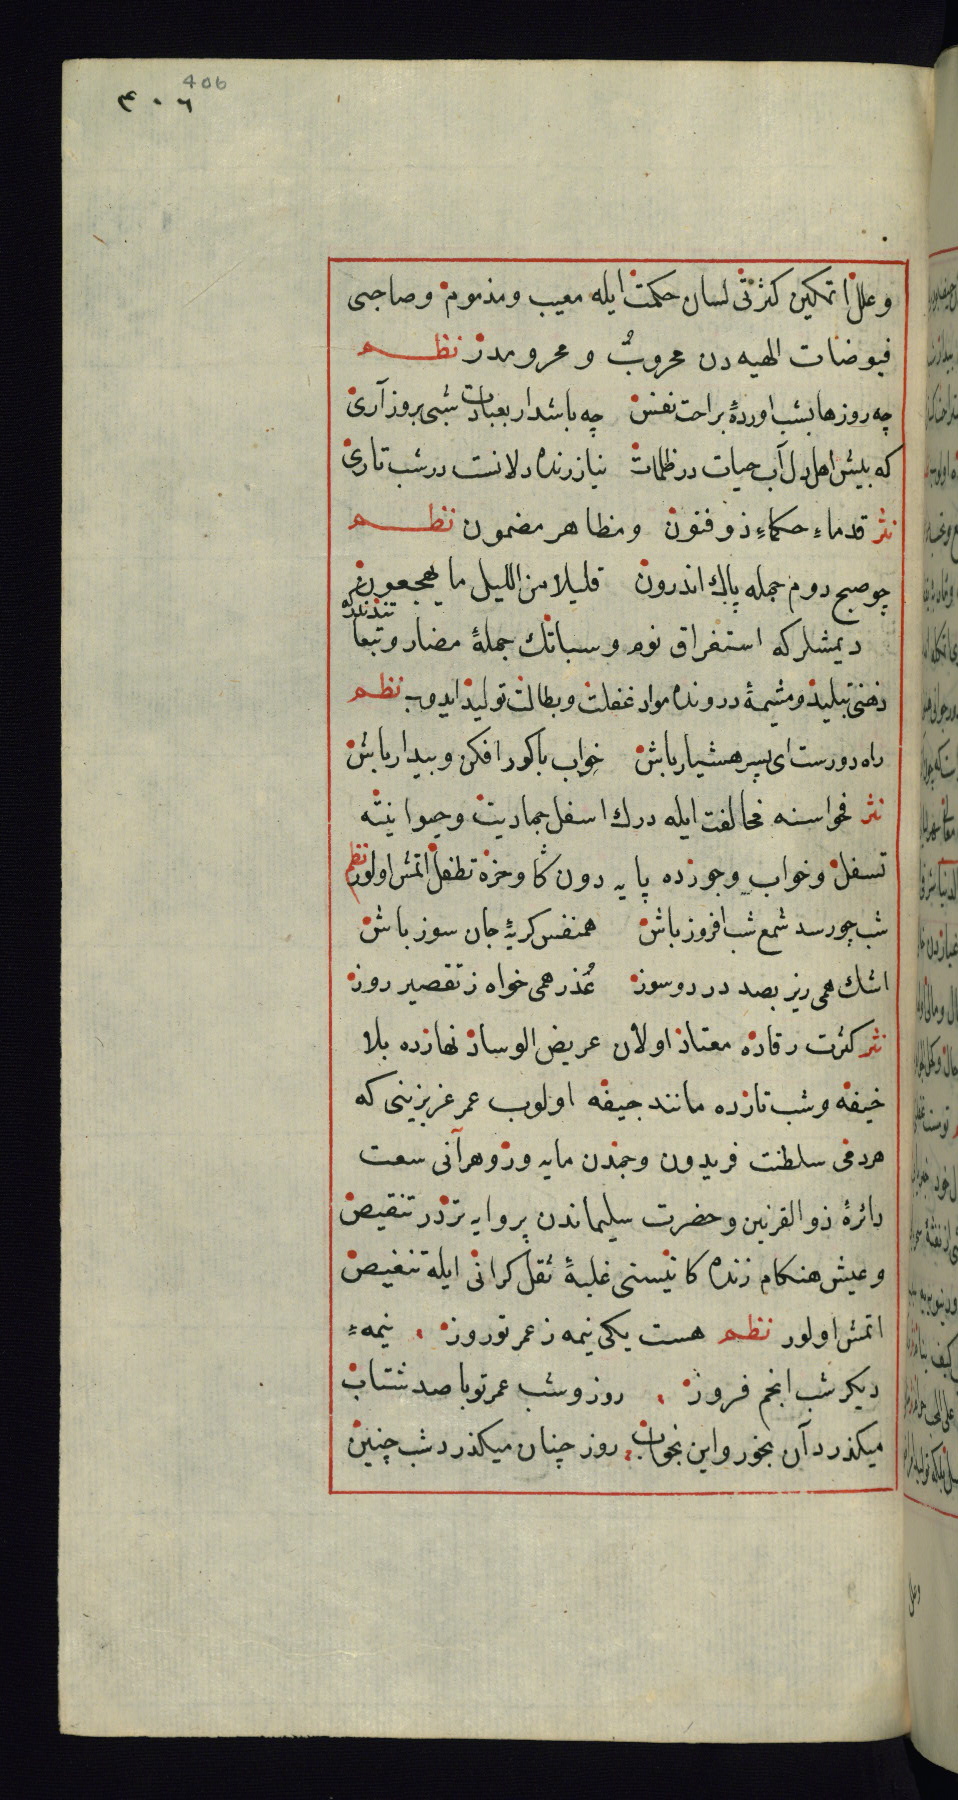 406
۴۰۶
وعلل اتمكین كثرتی لسان حكمت ایله معیب ومذموم وصاحبی
فیوضات الهیه دن محروب و محرومدر نظم
چه روزها بشب اوردۀ براحت نفس چه باشد ار بعبادت شبی بروز آری
كه بیش اهل دل آب حیات در ظلمات نیاز زنده دلانست در شب تاری
نثر قدماء حكماء ذو فنون ومظاهر مضمون نظم
چو صبح دوم جمله پاك اندرون قلیلا من اللیل ما یهجعون
دیمشلر كه استغراق نوم وسباتك جملۀ مضار وتبعا
تندندر كه
ذهنی تبلید ومشیمۀ درونده مواد غفلت وبطالت تولید ایدوب نظم
راه دورست ای پسر هشیار باش خواب با كور افكن وبیدار باش
نثر فحواسنه مخالفت ایله درك اسفل جمادیت وحیوانیته
تسفل وخواب وجوزده پایه دون كاوخره تطفل اتمش اولور نظم
شب چو رسد شمع شب افروز باش همنفس كریۀ جان سوز باش
اشك همی ریز بصد درد وسوز عذر همی خواه ز تقصیر روز
نثر كثرت رقاده معتاد اولان عریض الوساد نهارده بلا
خیفه وشب تارده مانند جیفه اولوب عمر عزیزینی كه
هر دمی سلطنت فریدون وجمدن مایه ور وهر آنی سعت
دائرۀ ذو القرنین وحضرت سلیماندن پروایه تردر تنقیص
وعیش هنكام زنده كانیسنی غلبۀ ثقل كرانی ایله تنغیص
اتمش اولور نظم هست یكی نیمه ز عمر تو روز نیمهٔ
دیكر شب انجم فروز روز وشب عمر تو با صد شتاب
میكذرد آن بخور واین بخواب روز چنان میكذرد شب چنین